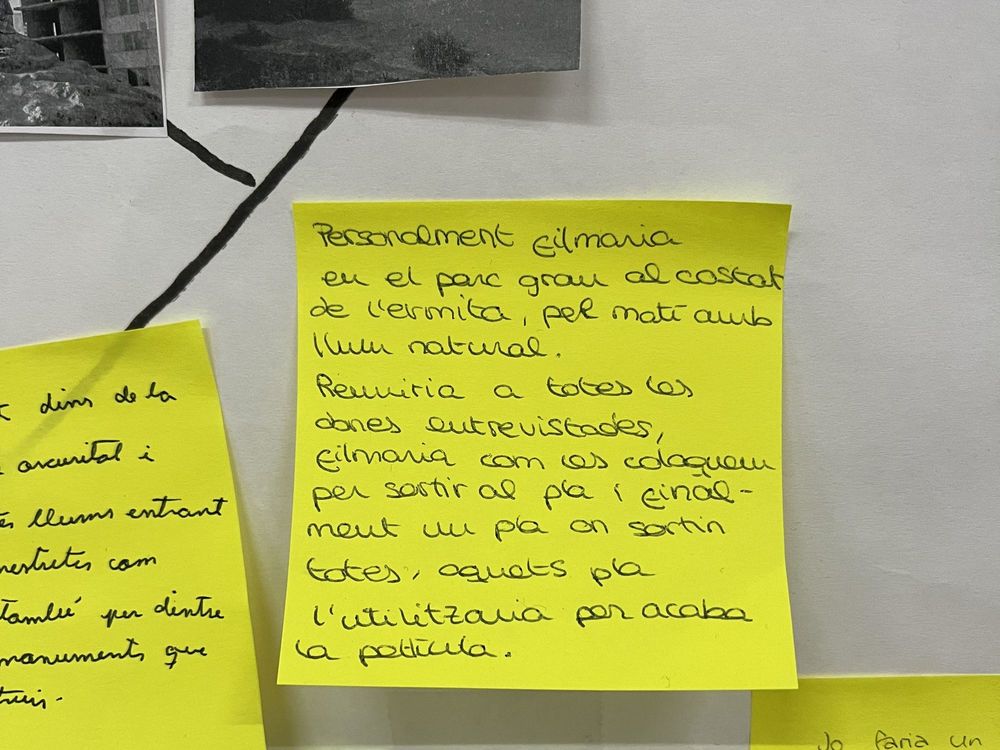 Personalment filmaria
en el parc gran al costat
de l'ermita, pel matí amb
llum natural.
Reuniria a totes les
dones entrevistades,
filmaria com les coloquem
per sortir al pla i final-
ment un pla on sortin
totes, aquets pla
l'utilitzaria per acaba
la pel·lícula.
dins de la
oscuritat i
llums entrant
com
també per dintre
monuments que
Jo faria un